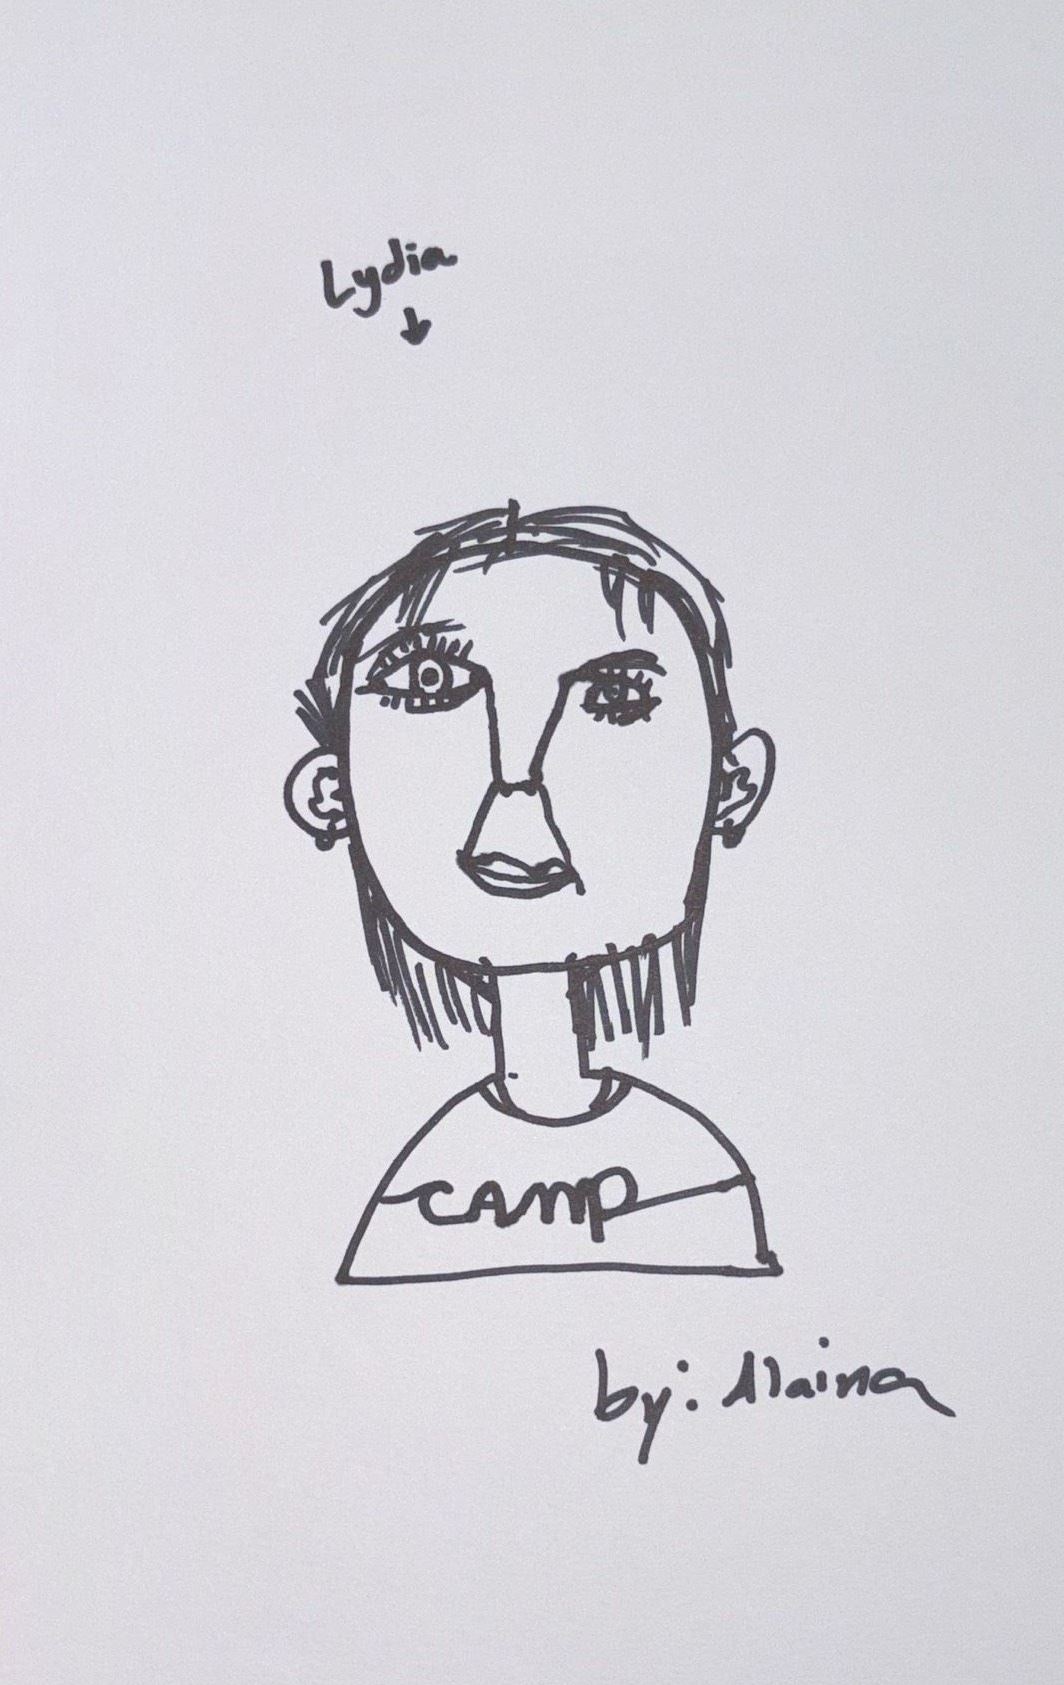 Lydia
CAMP
by: Alaina